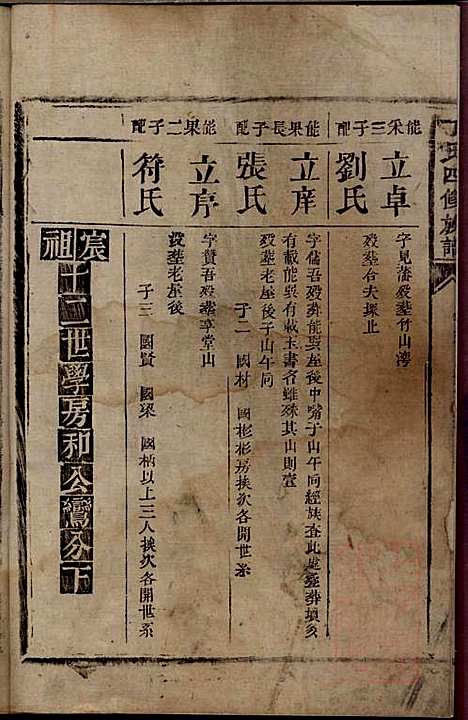 丁氏四修族譜
能釆三子配
立卓
劉氏
字見藩歿塟竹山灣
歿塟台夫塚止
能果長子配
立庠
張氏
字儲吾歿葬能吳屋後中嘴子山午向經族查此處塟葬墳多
有載能吳有載玉書名雖殊其山則壹
歿塟老屋後子山午向
子二 國材 國彬彬房挨次各開世系
能果二子配
立序
符氏
字贊吾歿塟享堂山
歿塟老屋後
子三 國賢 國梁 國柄以上三人挨次各開世系
宸祖十二世學房和公鸞分下